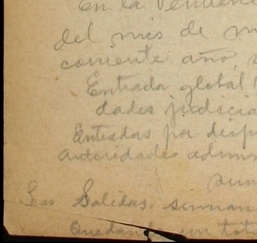 En la Peniten
del mes de m
corriente año,
Entrada global
dades judicia
Entradas por disp
autoridades admin
sum
Las Salidas suman
Quedando un tot